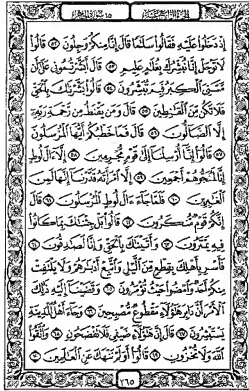 الجزء الرابع عشر سورة الحجر
إِذْ دَخَلُوا۟ عَلَيْهِ فَقَالُوا۟ سَلَٰمًا قَالَ إِنَّا مِنكُمْ وَجِلُونَ قَالُوا۟
لَا تَوْجَلْ إِنَّا نُبَشِّرُكَ بِغُلَٰمٍ عَلِيمٍ قَالَ أَبَشَّرْتُمُونِى عَلَىٰٓ أَن
مَّسَّنِىَ ٱلْكِبَرُ فَبِمَ تُبَشِّرُونَ قَالُوا۟ بَشَّرْنَٰكَ بِٱلْحَقِّ
فَلَا تَكُن مِّنَ ٱلْقَٰنِطِينَ قَالَ وَمَن يَقْنَطُ مِن رَّحْمَةِ رَبِّهِۦٓ
إِلَّا ٱلضَّآلُّونَ قَالَ فَمَا خَطْبُكُمْ أَيُّهَا ٱلْمُرْسَلُونَ
قَالُوٓا۟ إِنَّآ أُرْسِلْنَآ إِلَىٰ قَوْمٍ مُّجْرِمِينَ إِلَّآ ءَالَ لُوطٍ
إِنَّا لَمُنَجُّوهُمْ أَجْمَعِينَ إِلَّا ٱمْرَأَتَهُۥ قَدَّرْنَآ إِنَّهَا لَمِنَ
ٱلْغَٰبِرِينَ فَلَمَّا جَآءَ ءَالَ لُوطٍ ٱلْمُرْسَلُونَ قَالَ
إِنَّكُمْ قَوْمٌ مُّنكَرُونَ قَالُوا۟ بَلْ جِئْنَٰكَ بِمَا كَانُوا۟
فِيهِ يَمْتَرُونَ وَأَتَيْنَٰكَ بِٱلْحَقِّ وَإِنَّا لَصَٰدِقُونَ
فَأَسْرِ بِأَهْلِكَ بِقِطْعٍ مِّنَ ٱلَّيْلِ وَٱتَّبِعْ أَدْبَٰرَهُمْ وَلَا يَلْتَفِتْ
مِنكُمْ أَحَدٌ وَٱمْضُوا۟ حَيْثُ تُؤْمَرُونَ وَقَضَيْنَآ إِلَيْهِ ذَٰلِكَ
ٱلْأَمْرَ أَنَّ دَابِرَ هَٰٓؤُلَآءِ مَقْطُوعٌ مُّصْبِحِينَ وَجَآءَ أَهْلُ ٱلْمَدِينَةِ
يَسْتَبْشِرُونَ قَالَ إِنَّ هَٰٓؤُلَآءِ ضَيْفِى فَلَا تَفْضَحُونِ وَٱتَّقُوا۟
ٱللَّهَ وَلَا تُخْزُونِ قَالُوٓا۟ أَوَلَمْ نَنْهَكَ عَنِ ٱلْعَٰلَمِينَ
٢٦٥